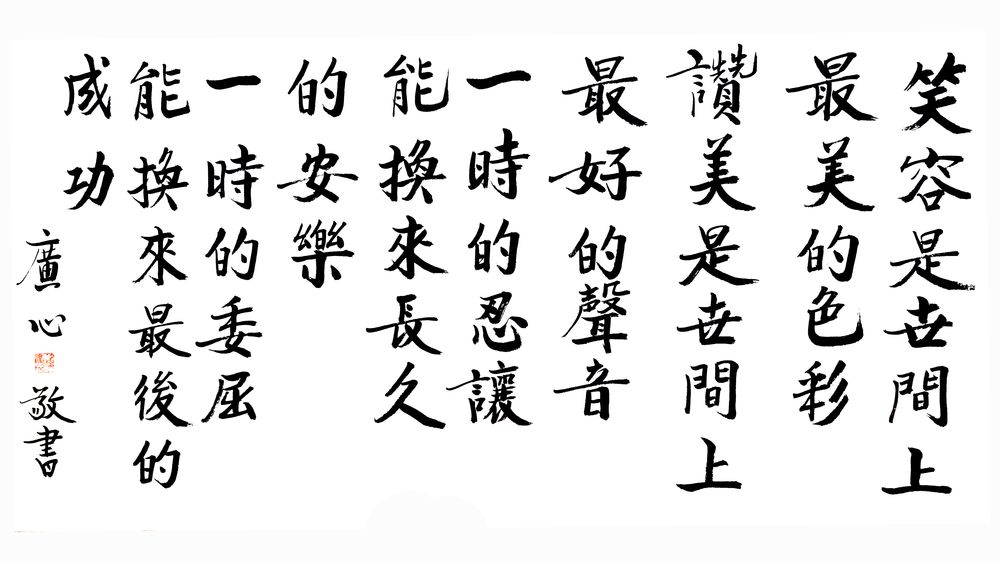 笑容是世間上
最美的色彩
讚美是世間上
最好的聲音
一時的忍讓
能換來長久
的安樂
一時的委屈
能換來最後的
成功
廣心
敬書